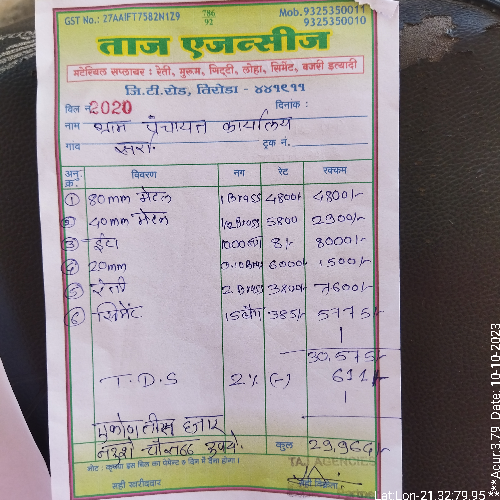 GST No.: 27AAIFT7582N1Z9
786
92
Mob. 9325350011
9325350011
ताज एजन्सीज
मटेरियल सप्लायर : रेती, मुरूम, गिट्टी, लोहा, सिमेंट, बजरी इत्यादी
जि.टी.रोड, तिरोडा - ४४१९११
बिल नं. 2020 दिनांक :
नाम ग्राम पंचायत कार्यालय
गांव ट्रक नं.
अनु. क्र. विवरण नग रेट रक्कम
1 80mm मेटल 1 Brass 4800/- 4800/-
2 40mm मेटल 1/2 Brass 5800 2900/-
3 ईटा 1000 नग 8/- 8000/-
4 20mm Brass 6000 1500/-
5 रेती 2 Brass 3800/- 7600/-
6 सिमेंट 15 बॅग 385/- 5775/-
30,575/-
T.D.S 2% (-) 611/-
एकोणतीस हजार
नऊशे चौसष्ट रुपये. कुल 29,964/-
नोट : कृपया इस बिल का पेमेन्ट ८ दिन में देना होगा।
TAJ AGENCIES
सही खरीददार सही विक्रेता
Lat Lon-21.32,79.95
Acur 3.79 Date: 10-10-2023